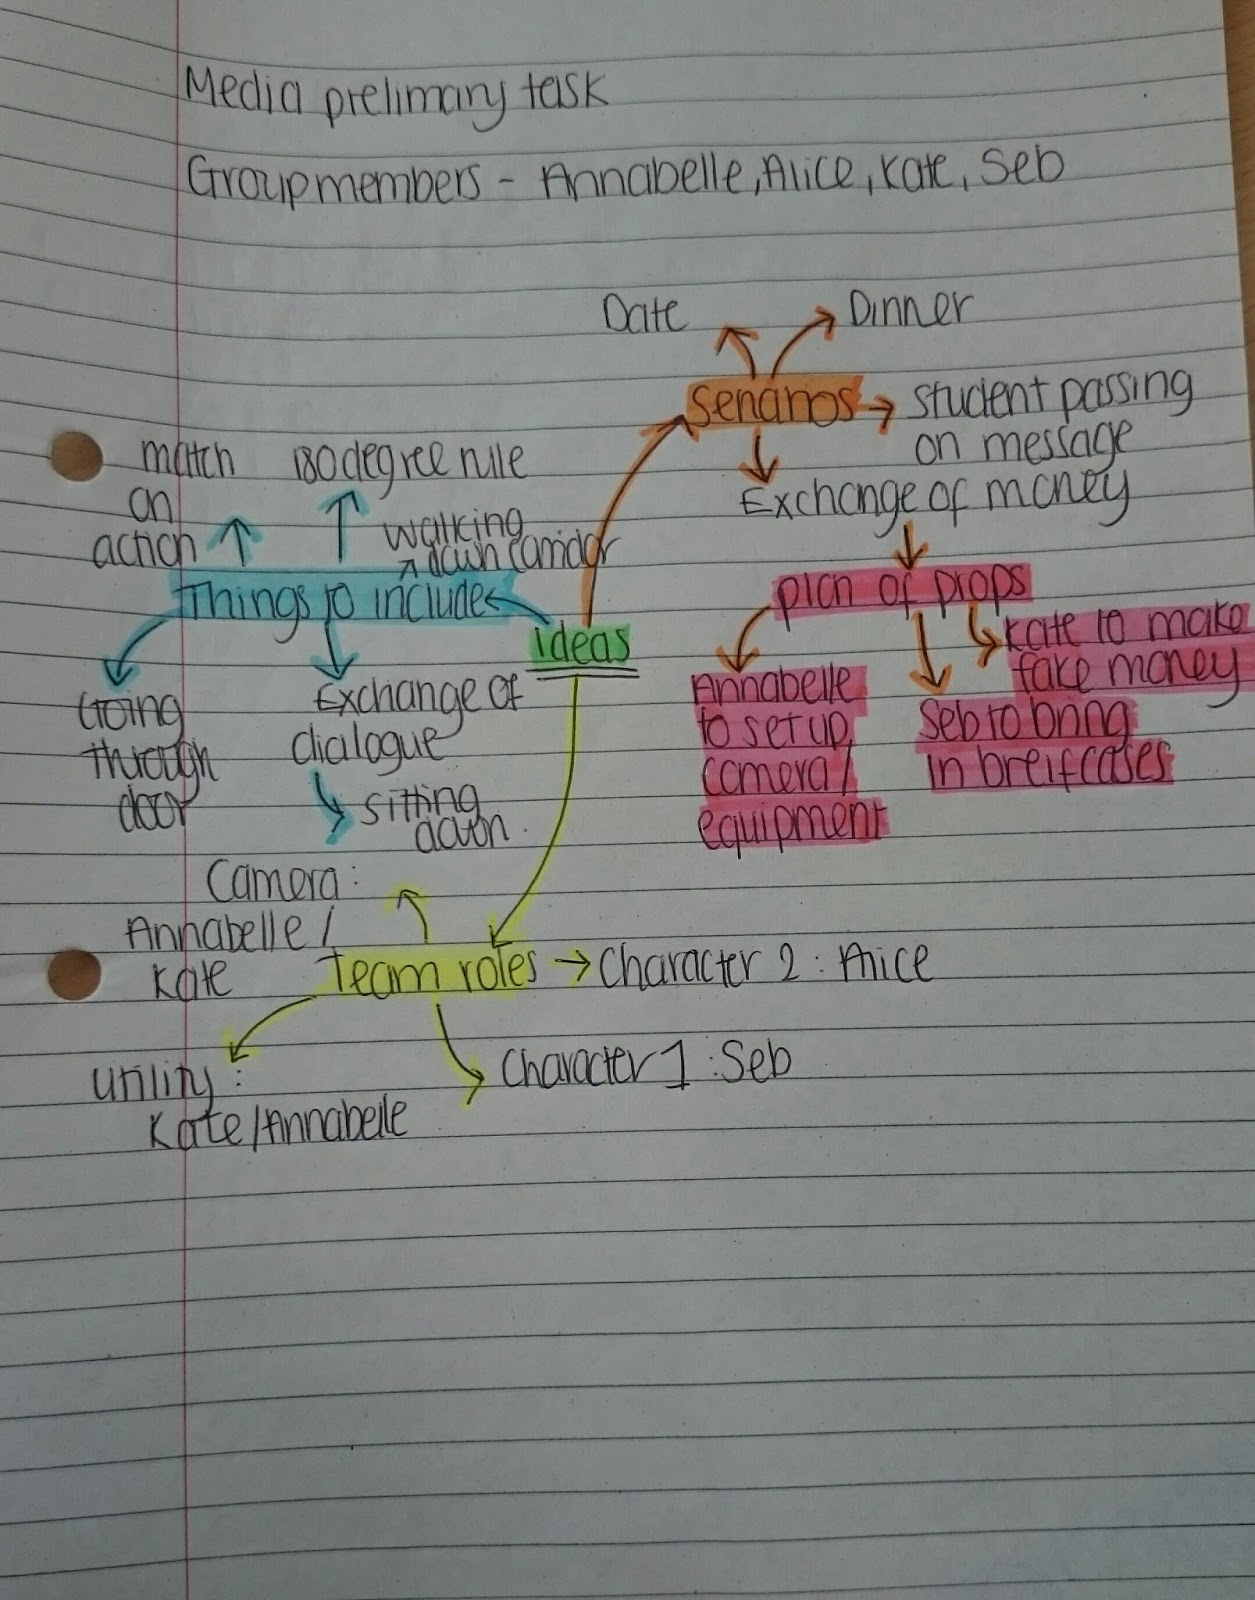 Media prelimary task
Group members - Annabelle, Alice, Kate, Seb
Date
Dinner
Senarios
student passing
on message
Exchange of money
plan of props
Kate to make
fake money
Annabelle
to set up
camera/
equipment
Seb to bring
in breifcases
match
on
action
180 degree rule
walking
down corridor
Things to include
ideas
Going
through
door
Exchange of
dialogue
sitting
down.
Camera:
Annabelle/
Kate
Team roles
Character 2: Alice
Character 1: Seb
utility:
Kate/Annabelle